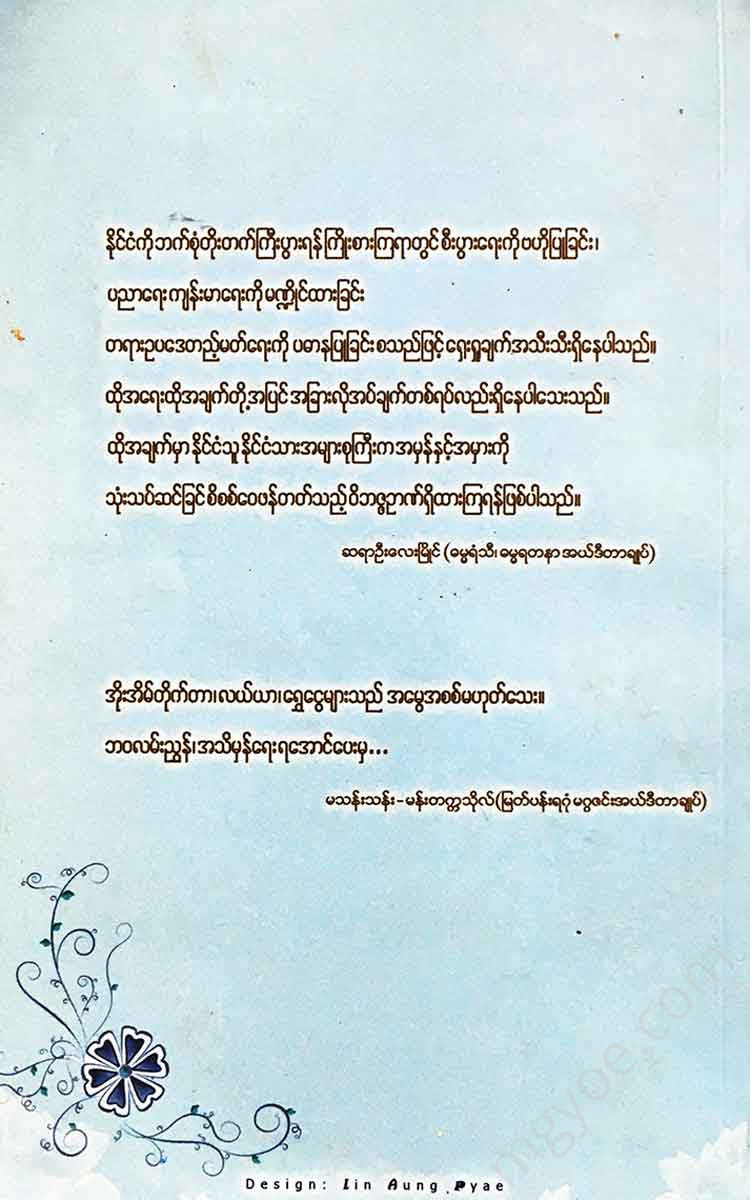 နိုင်ငံကို ဘက်စုံတိုးတက်ကြီးပွားရန် ကြိုးစားကြရာတွင် စီးပွားရေးကို ဗဟိုပြုခြင်း၊
ပညာရေး ကျန်းမာရေးကို မဏ္ဍိုင်ထားခြင်း
တရားဥပဒေတည့်မတ်ရေးကို ပဓာနပြုခြင်း စသည်ဖြင့် ရှေးရှုချက် အသီးသီးရှိနေပါသည်။
ထိုအရေးထိုအချက်တို့အပြင် အခြားလိုအပ်ချက်တစ်ရပ်လည်းရှိနေပါသေးသည်။
ထိုအချက်မှာ နိုင်ငံသူ နိုင်ငံသားအများစုကြီးက အမှန်နှင့်အမှားကို
သုံးသပ်ဆင်ခြင် စိစစ်ဝေဖန်တတ်သည့် ဝိဘဇ္ဇဉာဏ်ရှိထားကြရန်ဖြစ်ပါသည်။
ဆရာဦးလေးမြိုင် (ဓမ္မရံသီ၊ ဓမ္မရတနာ အယ်ဒီတာချုပ်)
အိုးအိမ်တိုက်တာ၊ လယ်ယာ၊ ရွှေငွေများသည် အမွေအစစ်မဟုတ်သေး။
ဘဝလမ်းညွှန်၊ အသိမှန်ရေးရအောင်ပေးမှ...
မသန်းသန်း - မန်းတက္ကသိုလ် (မြတ်ပန်းရဂုံ မဂ္ဂဇင်းအယ်ဒီတာချုပ်)
Design: Lin Aung Pyae
mgyoe.com